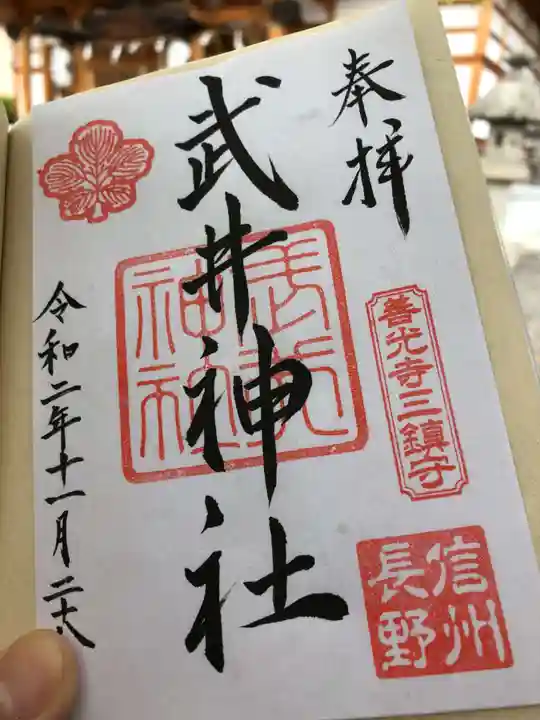 奉拝
善光寺三鎮守
信州
長野
武井神社
武井
神社
令和二年十一月二十八